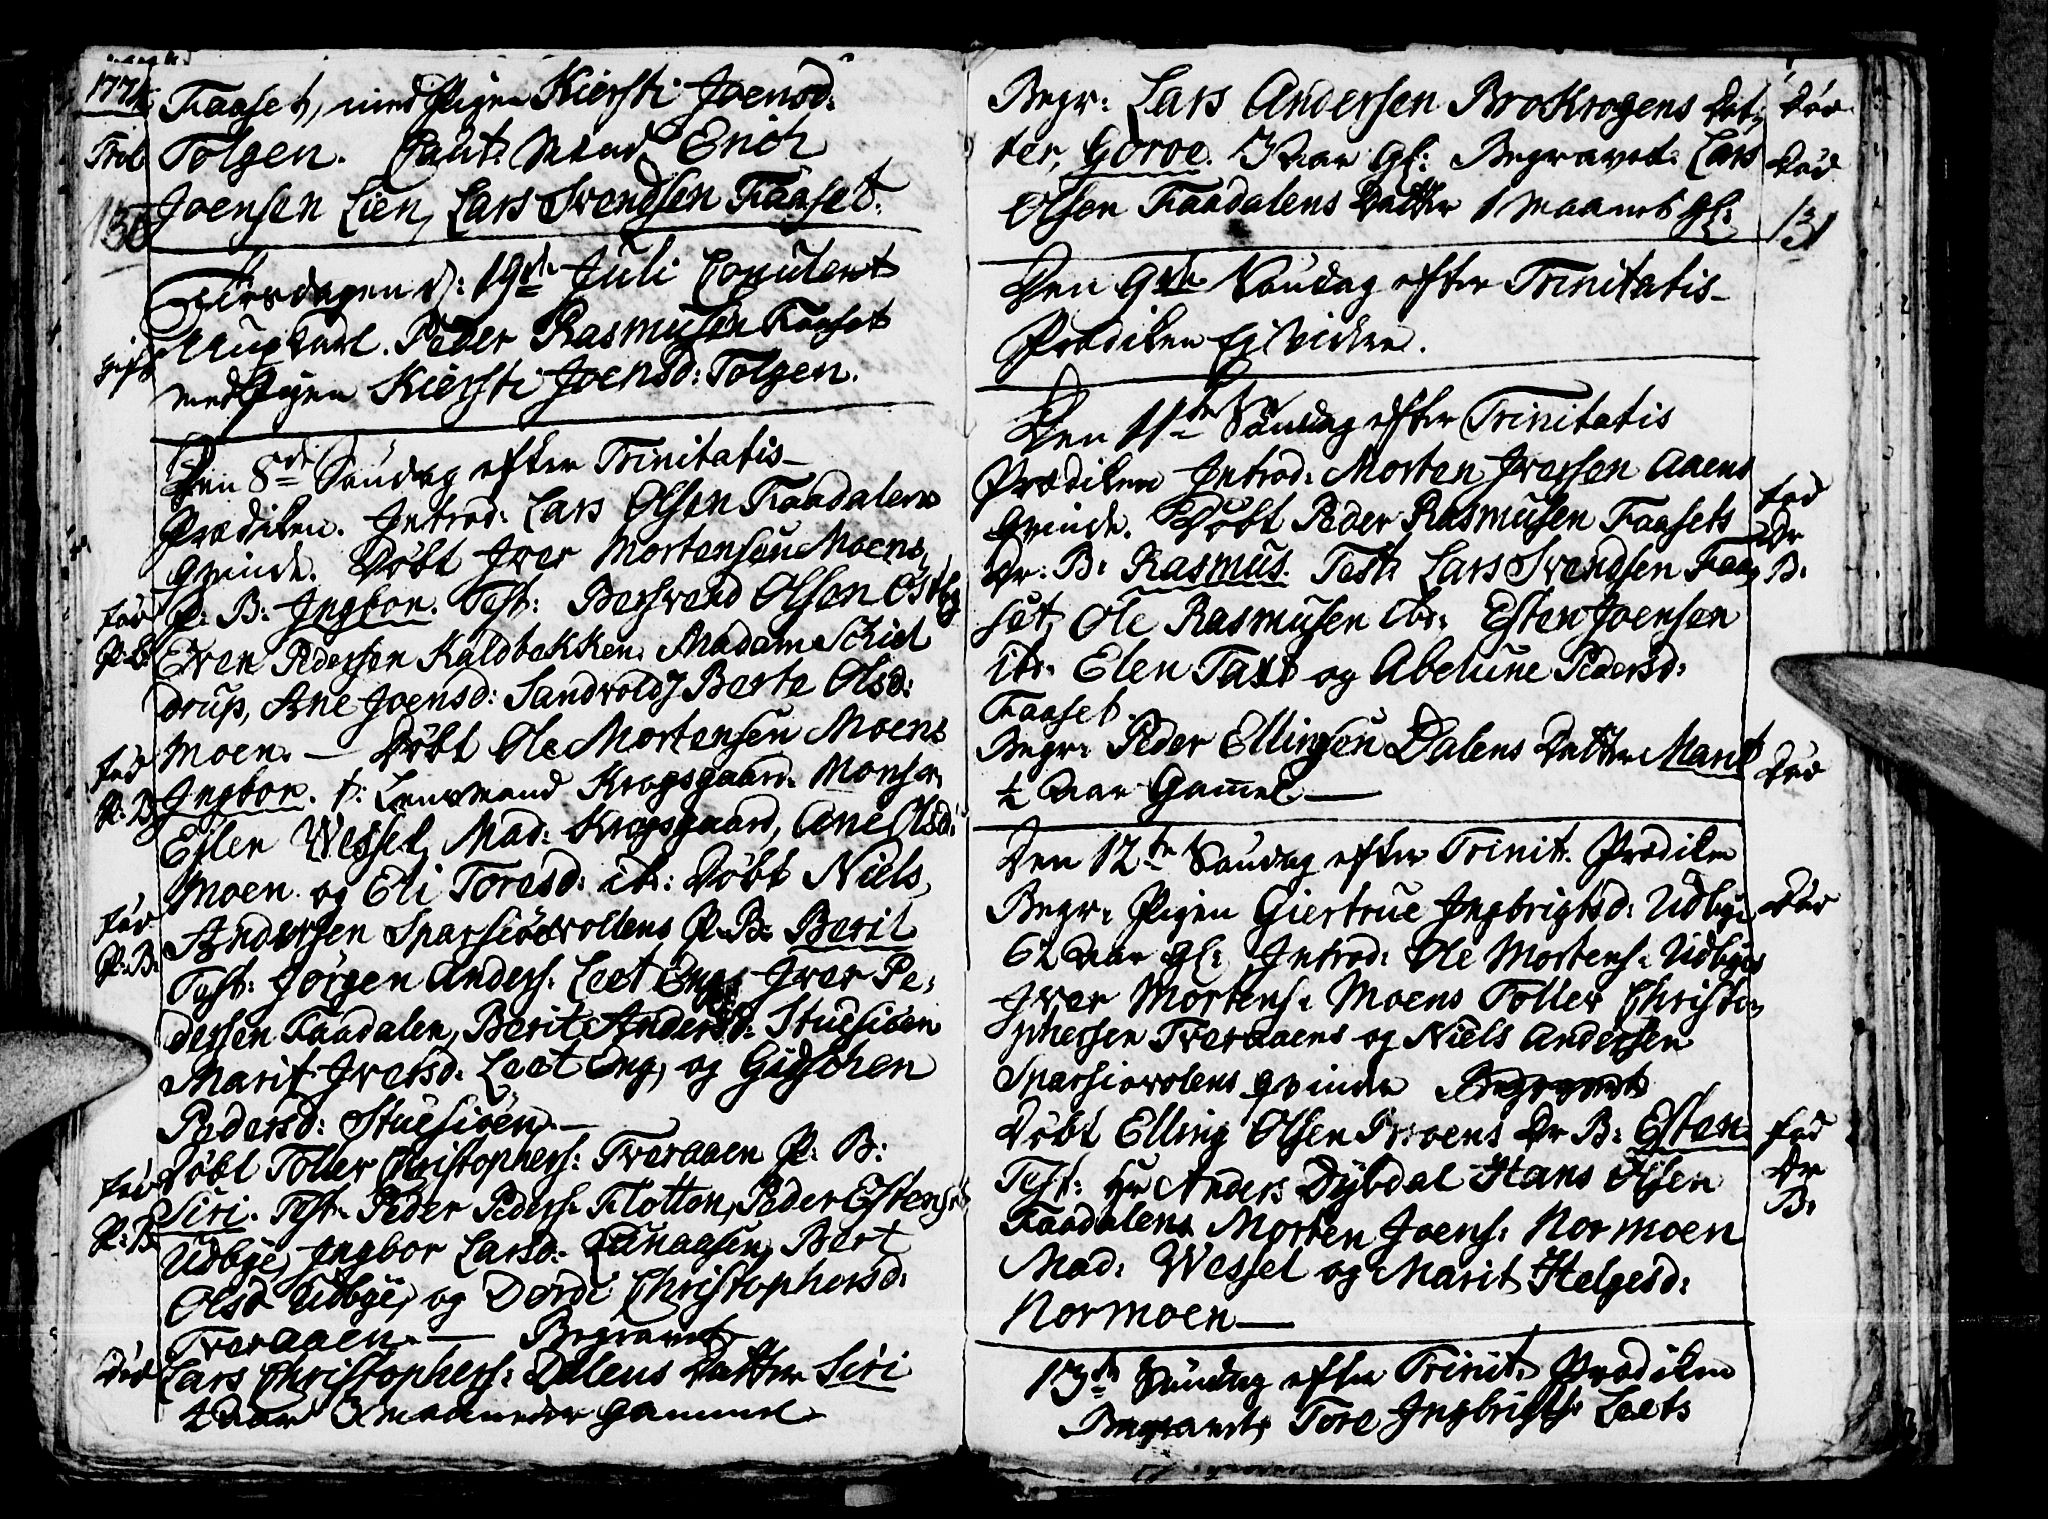 1774
Faaset, med Pigen Kiersti Joensd:
Trol. Tolgen. Caut: Mænd Erich
130 Joensen Lien, Lars Svendsen Faaset.
Tiirsdagen d: 19de Juli Copuleret
Ung Karl. Peder Rasmusen Faaset
gift med Pigen Kiersti Joensd: Tolgen.
Den 8de Søndag efter Trinitatis
Prædiken. Introd: Lars Olsen Faadalens
Qvinde. Døbt Iver Mortensen Moens
fød P: B: Ingbor. Test: Bersvend Olsen Østby
P. B. Even Pedersen Kaldbekken. Madam Schiel
drup, Ane Joensd: Sandvold, Berte Olsd:
Moen. — Døbt Ole Mortensen Moens
fød P: B. Ingbor. t: Lensmand Krogsgaard. Monsr.
Esten Wessel, Mad: Krogsgaard, Ane Olsd:
Moen og Eli Toresd: ib: Døbt Niels
fød P: B. Andersen Sparsiøvollens P: B: Beril
Test: Jørgen Anders: Leet Eng, Iver Pe,
dersen Faadalen, Berit Andersd: Stuesiøen
Marit Iversd: Leet Eng, og Gidschen
Pedersd: Stuesiøen. —
fød Døbt Toller Christophers: Tveraaen P: B:
P: B. Siri. Test. Peder Peders: Flotten, Peder Estens:
Udbye, Ingbor Larsd: Lunaasen, Berit
Olsd Udbye, og Dordi Christophersd:
Tveraaen. — Begravet
Død Lars Christophers: Dalens Datter Siri
½ Aar 3 maaneder gammel.
Begr: Lars Andersen BroKrogens Dat, Død
ter, Goroe. 3 Aar gl: Begravet: Lars Død
Olsen Faadalens Datter 1 Maaned gl: 131
Den 9de Søndag efter Trinitatis
Prædiken Ej videre.
Den 11te Søndag efter Trinitatis
Prædiken Introd: Morten Iversen Aaens
Qvinde. Døbt Peder Rasmusen Faasets fød
Dr: B: Rasmus. Test: Lars Svendsen Faa, Dr B:
set, Ole Rasmusen ibr: Esten Joensen
ib: Elen Taxt og Abelune Pedersd:
Faaset.
Begr: Peder Ellingsen Dalens Datter Marit Død
½ Aar Gammel —
Den 12te Søndag efter Trinit: Prædiken
Begr: Pigen Giertrue Ingbrigtsd: Udbye Død
62 Aar gl: Introd: Ole Mortens: Udbyes
Iver Mortens: Moens Toller Christo,
phersen Tveraaens og Niels Andersen
Sparsiøvolens Qvinder
Døbt Elling Olsen Moens Dr B: Esten fød
Test: Hr Anders Dybdal Hans Olsen Dr
Faadalen Morten Joens: Normoen B:
Mad: Wessel og Marit Helgesd:
Normoen —
13de Søndag efter Trinit: Prædiken
Begravet, Tore Ingbrigts: Leets